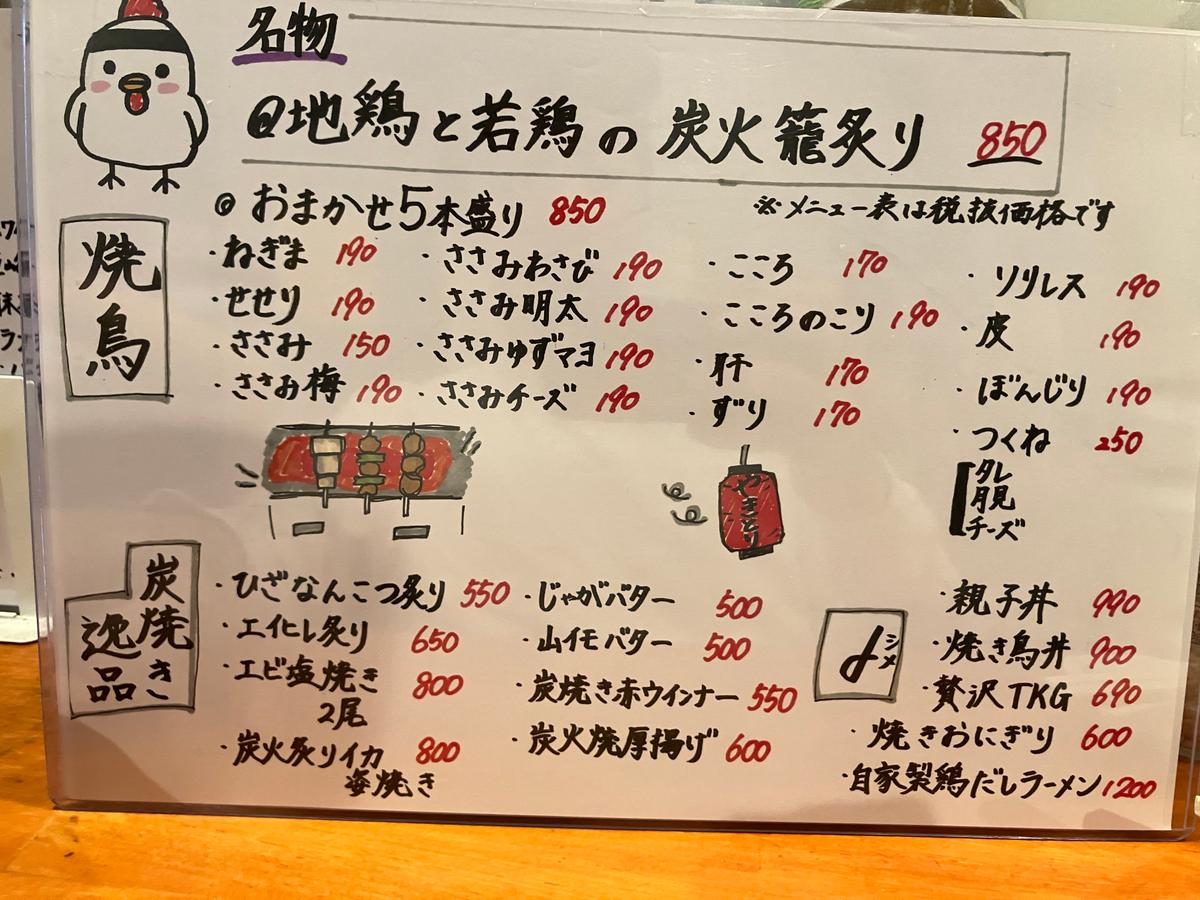 名物
@地鶏と若鶏の炭火籠炙り 850
◎おまかせ5本盛り 850
※メニュー表は税抜価格です
焼鳥
・ねぎま 190
・せせり 190
・ささみ 150
・ささみ梅 190
・ささみわさび 190
・ささみ明太 190
・ささみゆずマヨ 190
・ささみチーズ 190
・こころ 170
・こころのこり 190
・肝 170
・ずり 170
・ソリレス 190
・皮 190
・ぼんじり 190
・つくね 250
タレ
月見
チーズ
やきとり
炭焼き
逸品
・ひざなんこつ炙り 550
・エイヒレ炙り 650
・エビ塩焼き 800
2尾
・炭火炙りイカ 800
姿焼き
・じゃがバター 500
・山イモバター 500
・炭焼き赤ウインナー 550
・炭火焼厚揚げ 600
〆
シメ
・親子丼 990
・焼き鳥丼 900
・贅沢TKG 690
・焼きおにぎり 600
・自家製鶏だしラーメン 1200